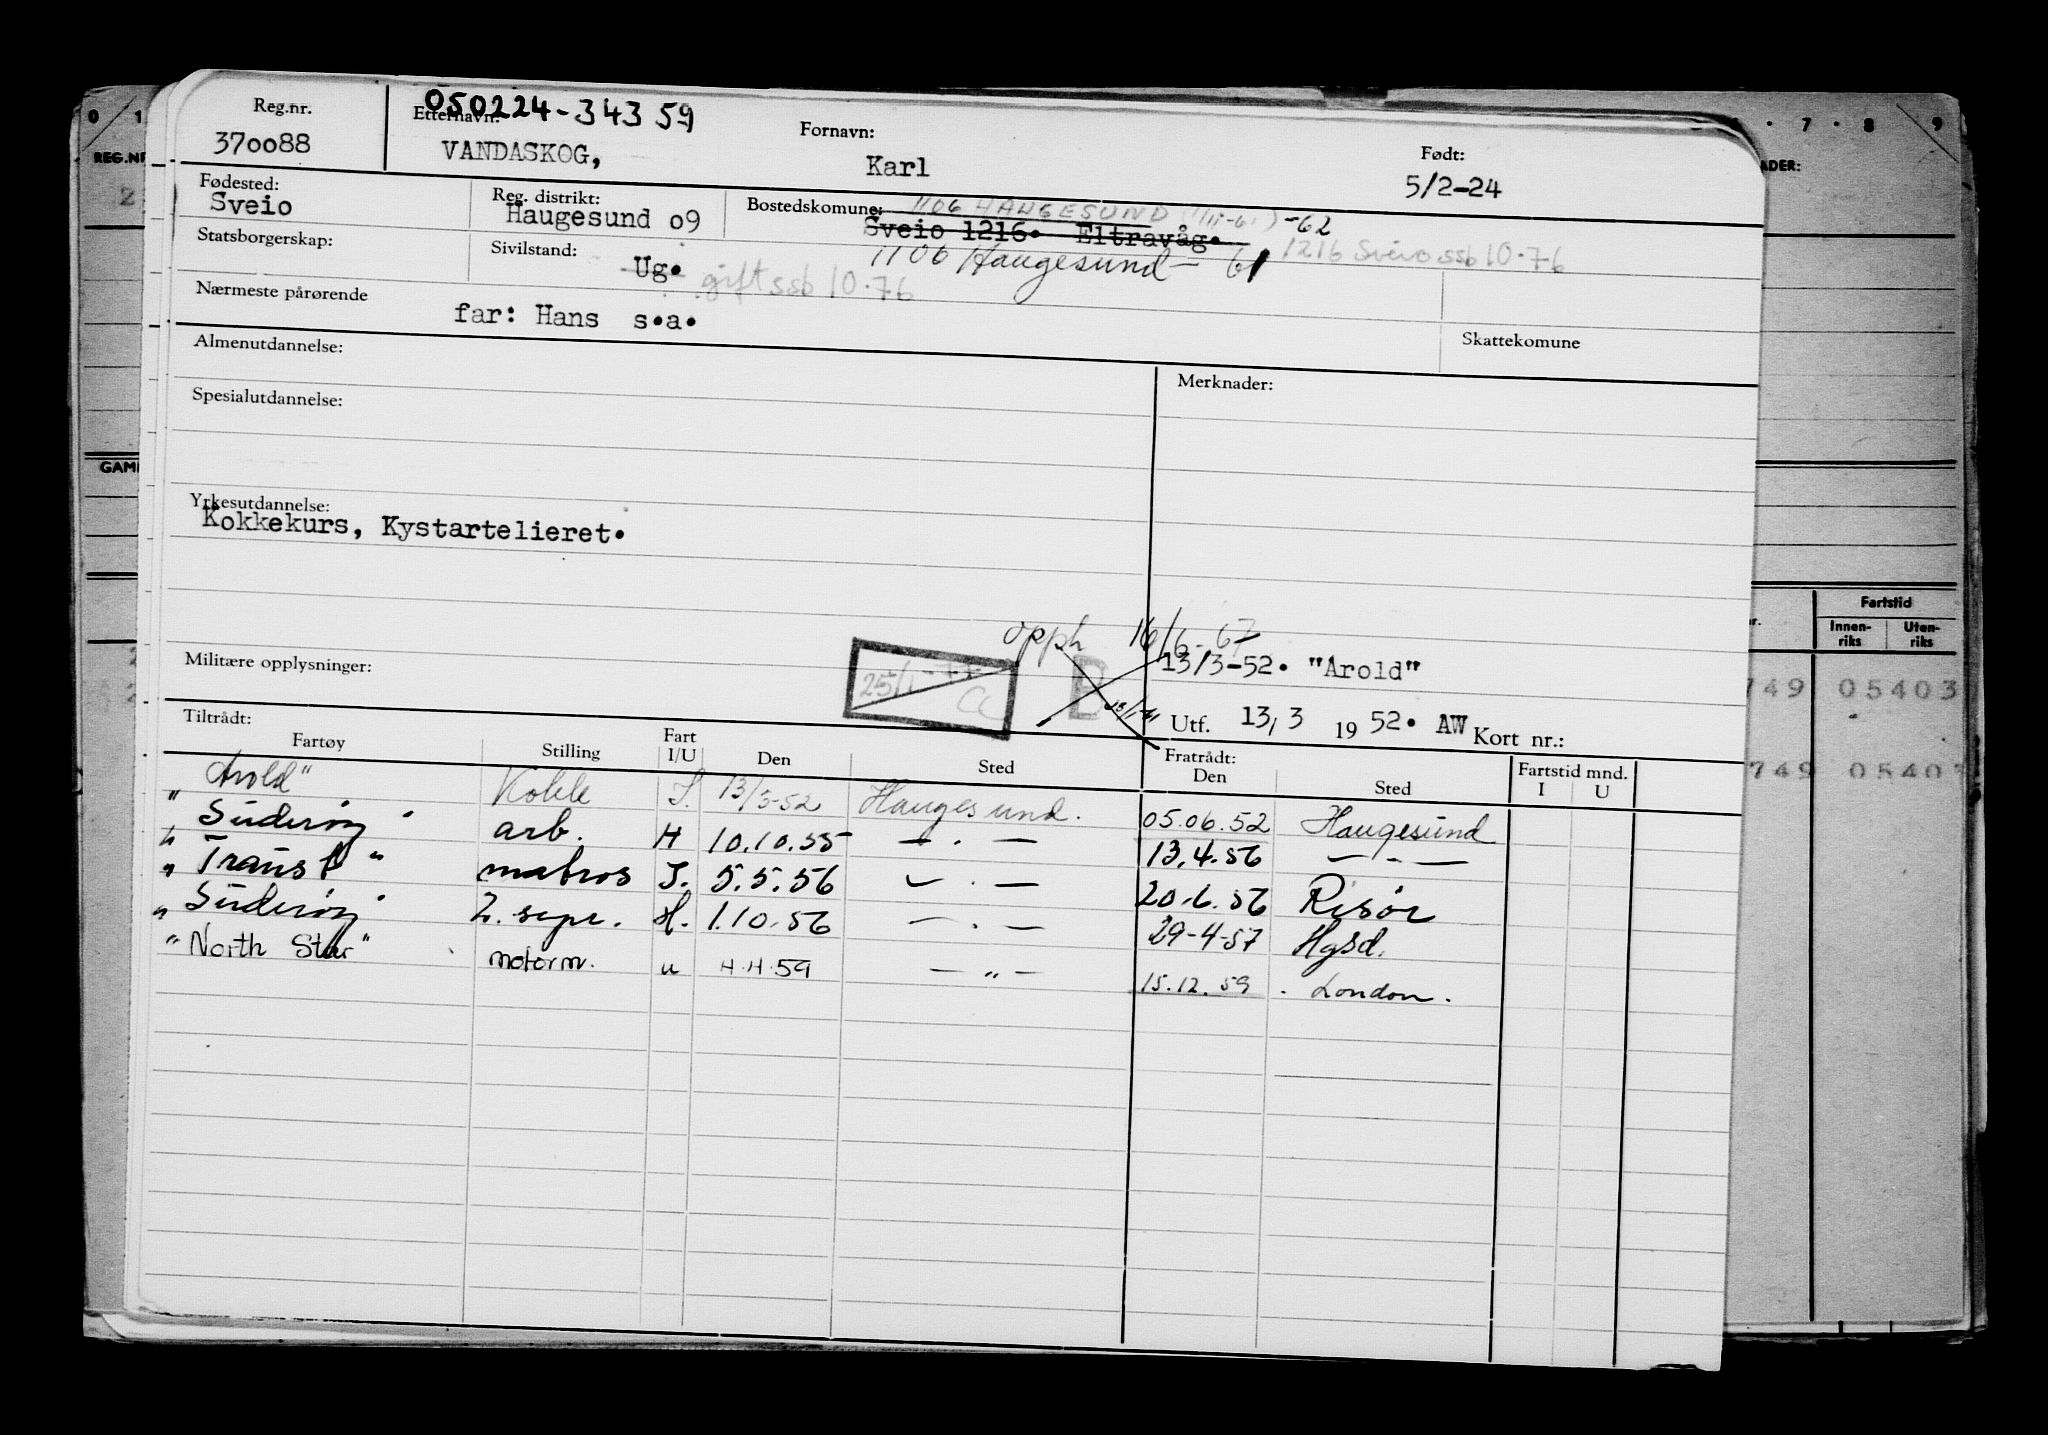 050224-34359
Reg.nr. Etternavn: Fornavn: Født:
370088 VANDASKOG, Karl 5/2-24
Fødested: Reg. distrikt: Bostedskomune: 1106 HAUGESUND -62
Sveio Haugesund 09 Sveio 1216. Eltravåg.
Statsborgerskap: Sivilstand: 1106 Haugesund - 61 1216 Sveio ssb 10.76
Ug. gift ssb 10.76
Nærmeste pårørende
far: Hans s.a.
Almenutdannelse: Skattekomune
Spesialutdannelse: Merknader:
Yrkesutdannelse:
Kokkekurs, Kystartelieret.
opph 16/6-67
Militære opplysninger: 25/1-77 CC B 13/3-52. "Arold"
Utf. 13/3 1952. AW Kort nr.:
Tiltrådt: Fratrådt:
Fartøy Stilling Fart I/U Den Sted Den Sted Fartstid mnd. I U
"Arold" Kokk I. 13/3-52 Haugesund. 05.06.52 Haugesund
"Suderøy" arb. H 10.10.55 — . — 13.4.56 — - —
"Transit" matros I. 5.5.56 — . — 20.6.56 Risør
"Suderøy" H. 1.10.56 — . — 29-4-57 Hgsd.
"North Star" motorm. u 4.4.59 — " — 15.12.59 London.
0 1 7 8 9
REG.NR
GAML
Fartstid
Innen-riks Uten-riks
749 05403
749 05403